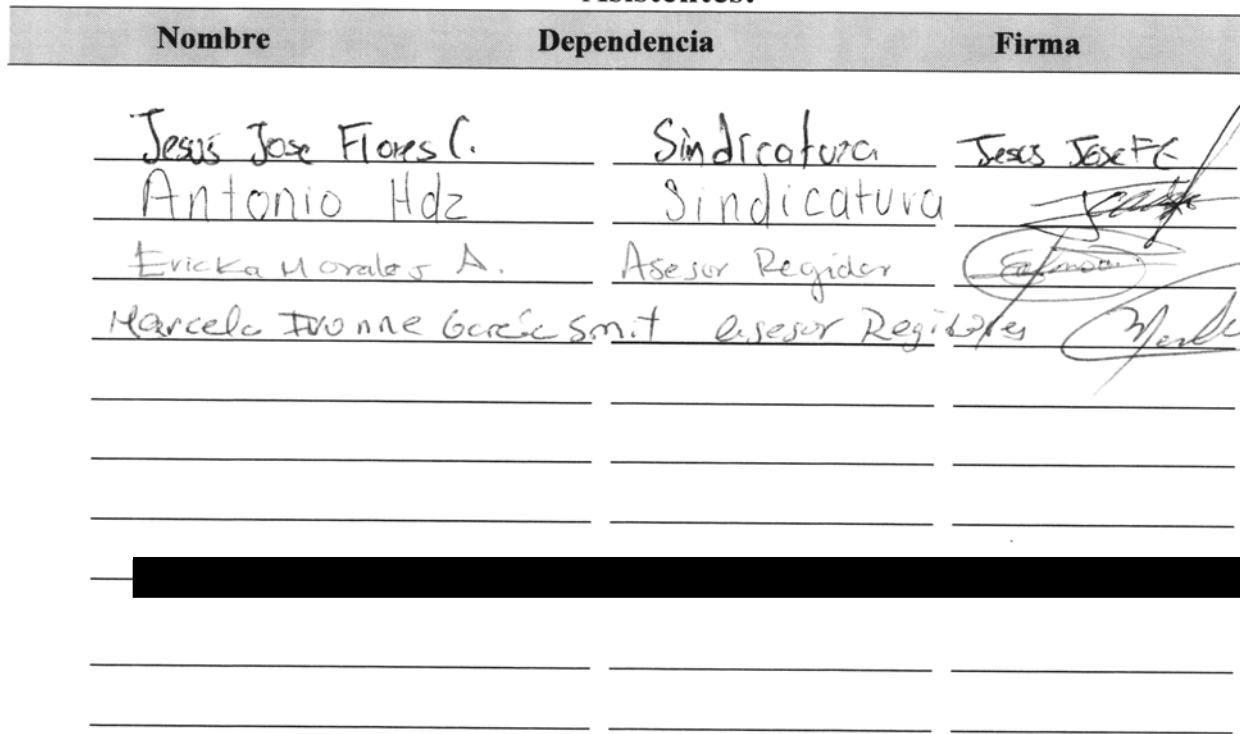 Asistentes:
Nombre Dependencia Firma
Jesús Jose Flores C. Sindicatura Jesús José F C
Antonio Hdz Sindicatura
Ericka Morales A. Asesor Regidor
Marcela Ivonne García Smit asesor Regidores